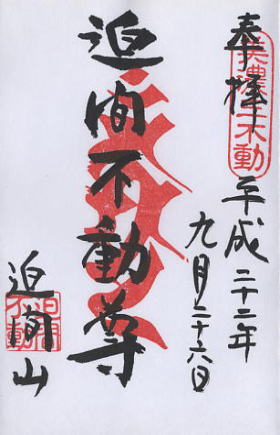 奉拝
美濃三不動
平成二十二年
九月二十六日
迫間不動尊
迫間山
迫間不動